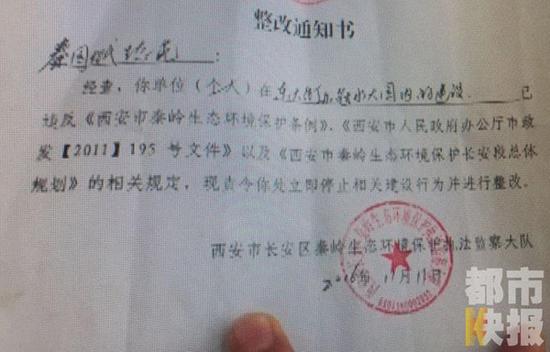 整改通知书
：
经查，你单位（个人）在东大街办 内的建设 已
违反《西安市秦岭生态环境保护条例》、《西安市人民政府办公厅市政
发【2011】195 号文件》以及《西安市秦岭生态环境保护长安段总体
规划》的相关规定，现责令你处立即停止相关建设行为并进行整改。
西安市长安区秦岭生态环境保护执法监察大队
2016年11月11日
都市
快报